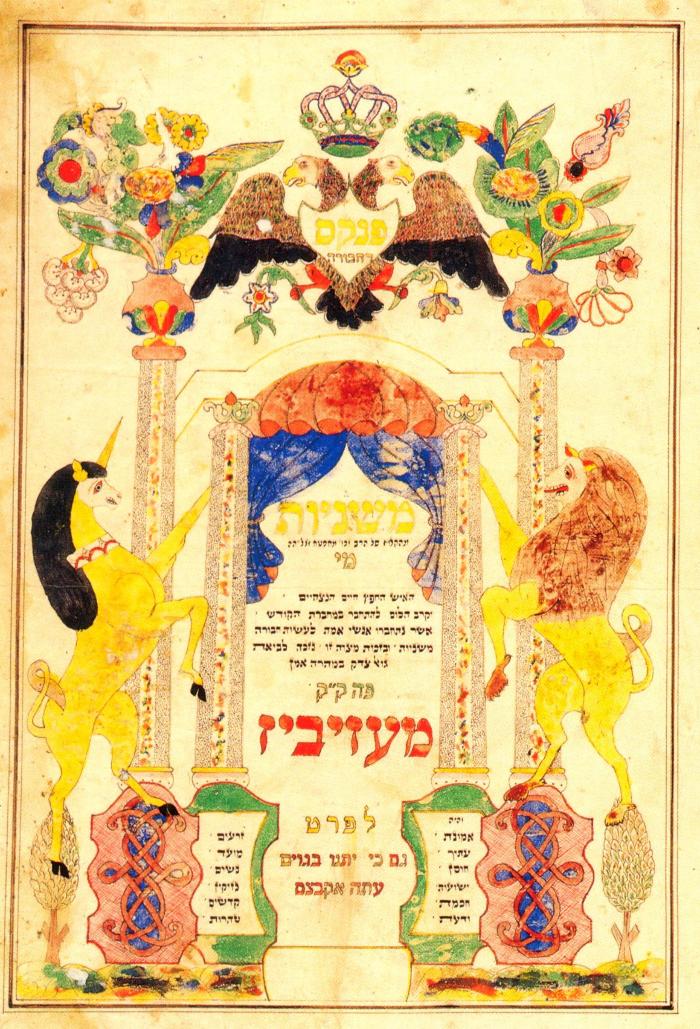 פנקס
דחבורה
משניות
מי
האיש החפץ חיים הנצחיים
יקרב הלום להתחבר במחברת הקודש
אשר נתחברו אנשי אמת לעשות חבורה
משניות ובזכות מצוה זו נזכה לביאת
גוא צדק במהרה אמן
פה ק״ק
מעזיביז
לפרט
גם כי יתנו בגוים
עתה אקבצם
זרעים
מועד
נשים
נזיקין
קדשים
טהרות
והיה
אמונת
עתיך
חוסן
ישועות
חכמת
ודעת